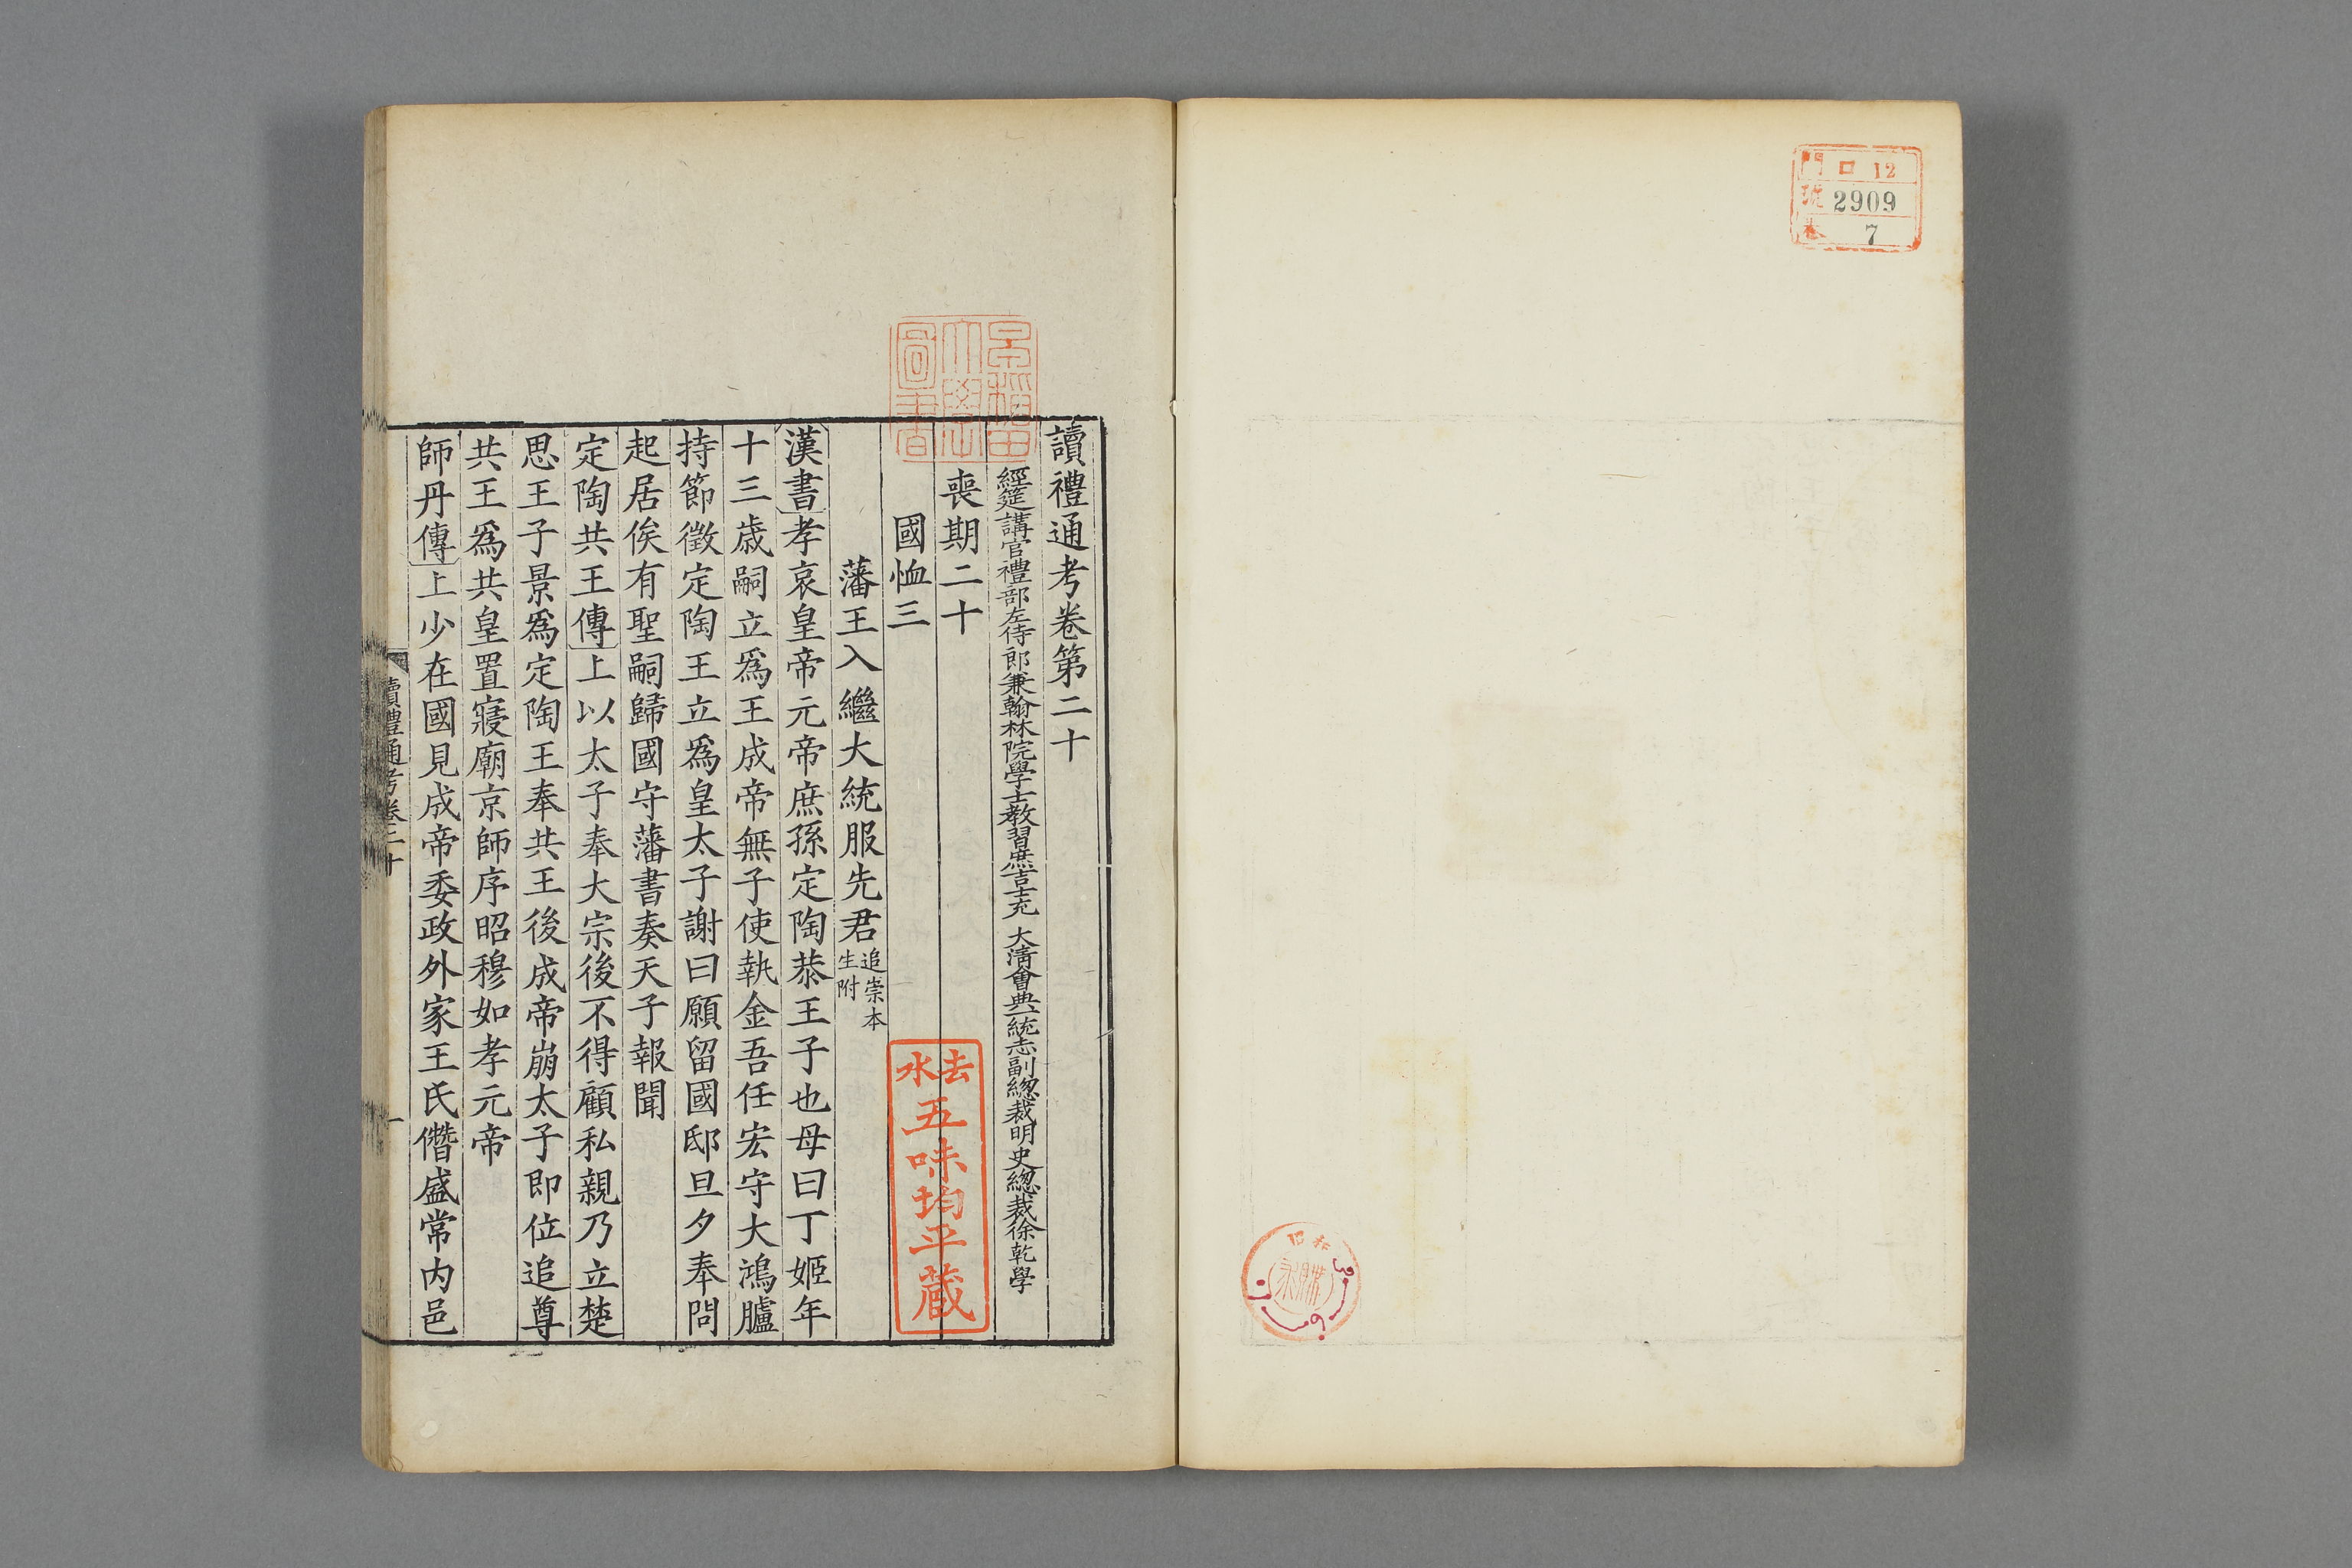 門 口 12
號 2909
卷 7
早稲田
大學
圖書
讀禮通考卷第二十
經筵講官禮部左侍郎兼翰林院學士教習庶吉士充 大清會典一統志副總裁明史總裁徐乾學
喪期二十
國恤三
藩王入繼大統服先君追崇本
生附
漢書孝哀皇帝元帝庶孫定陶恭王子也母曰丁姬年
十三歲嗣立爲王成帝無子使執金吾任宏守大鴻臚
持節徵定陶王立爲皇太子謝曰願留國邸旦夕奉問
起居俟有聖嗣歸國守藩書奏天子報聞
定陶共王傳上以太子奉大宗後不得顧私親乃立楚
思王子景爲定陶王奉共王後成帝崩太子即位追尊
共王爲共皇置寢廟京師序昭穆如孝元帝
師丹傳上少在國見成帝委政外家王氏僭盛常内邑
讀禮通考卷二十
一
去水
五味均平藏